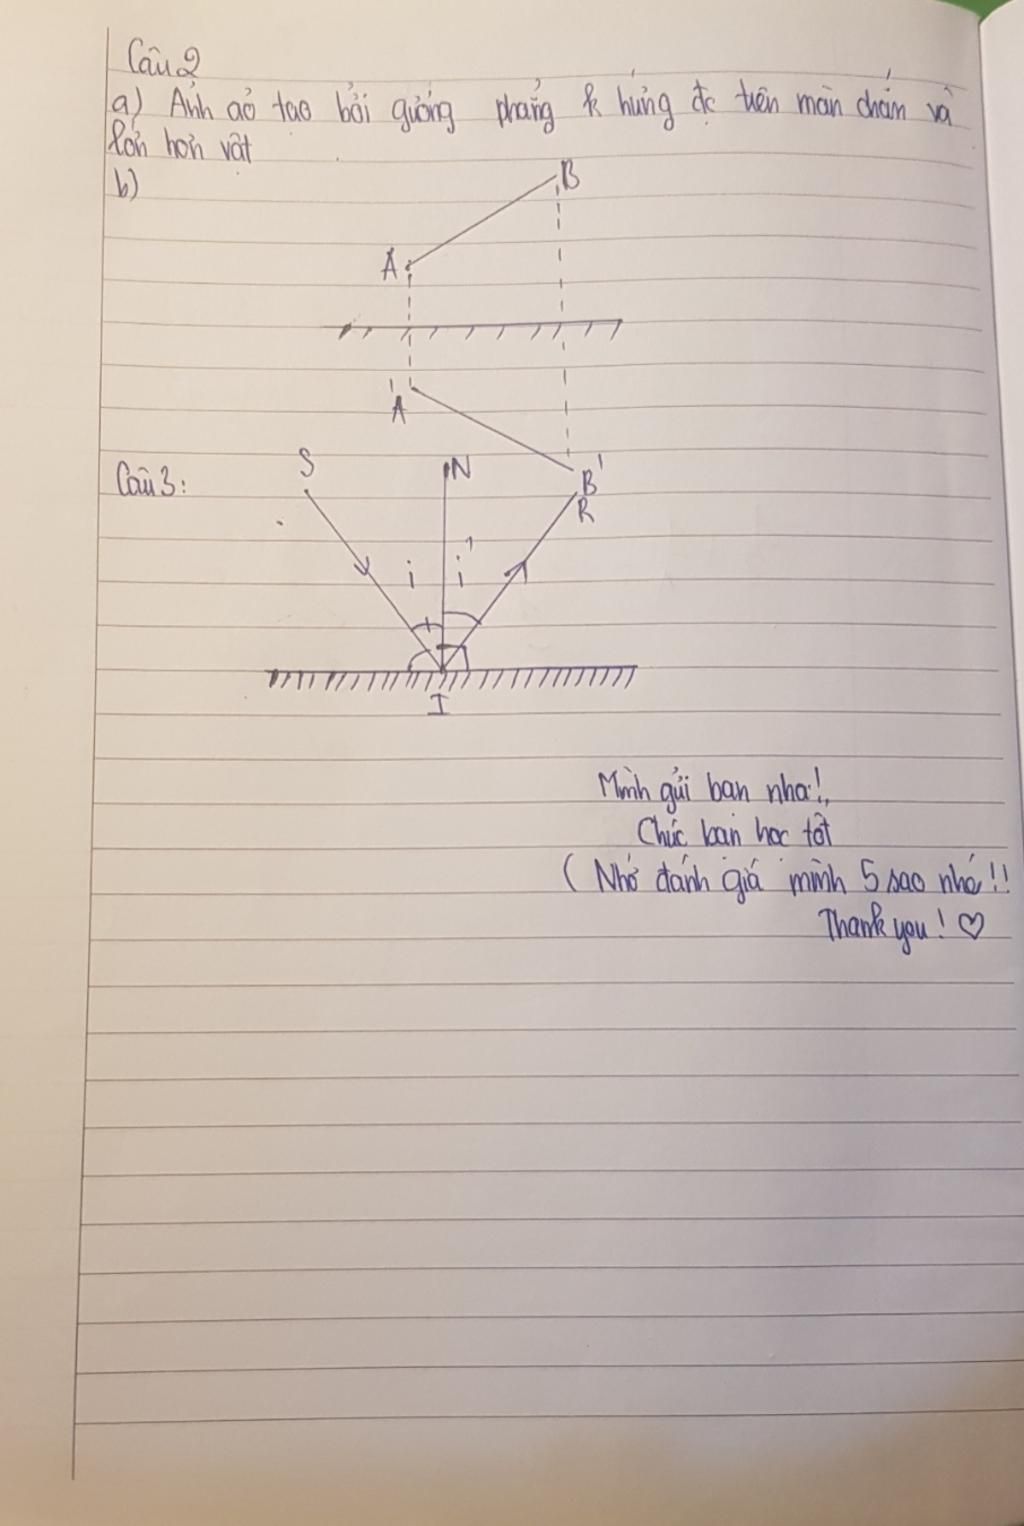 Câu 2
a) Ảnh ảo tạo bởi gương phẳng k hứng đc trên màn chắn và
lớn hơn vật
b)
B
A
A'
B'
Câu 3:
S
N
R
i
i'
I
Mình gửi bạn nha!
Chúc bạn học tốt
( Nhớ đánh giá mình 5 sao nhá!!
Thank you! ♡